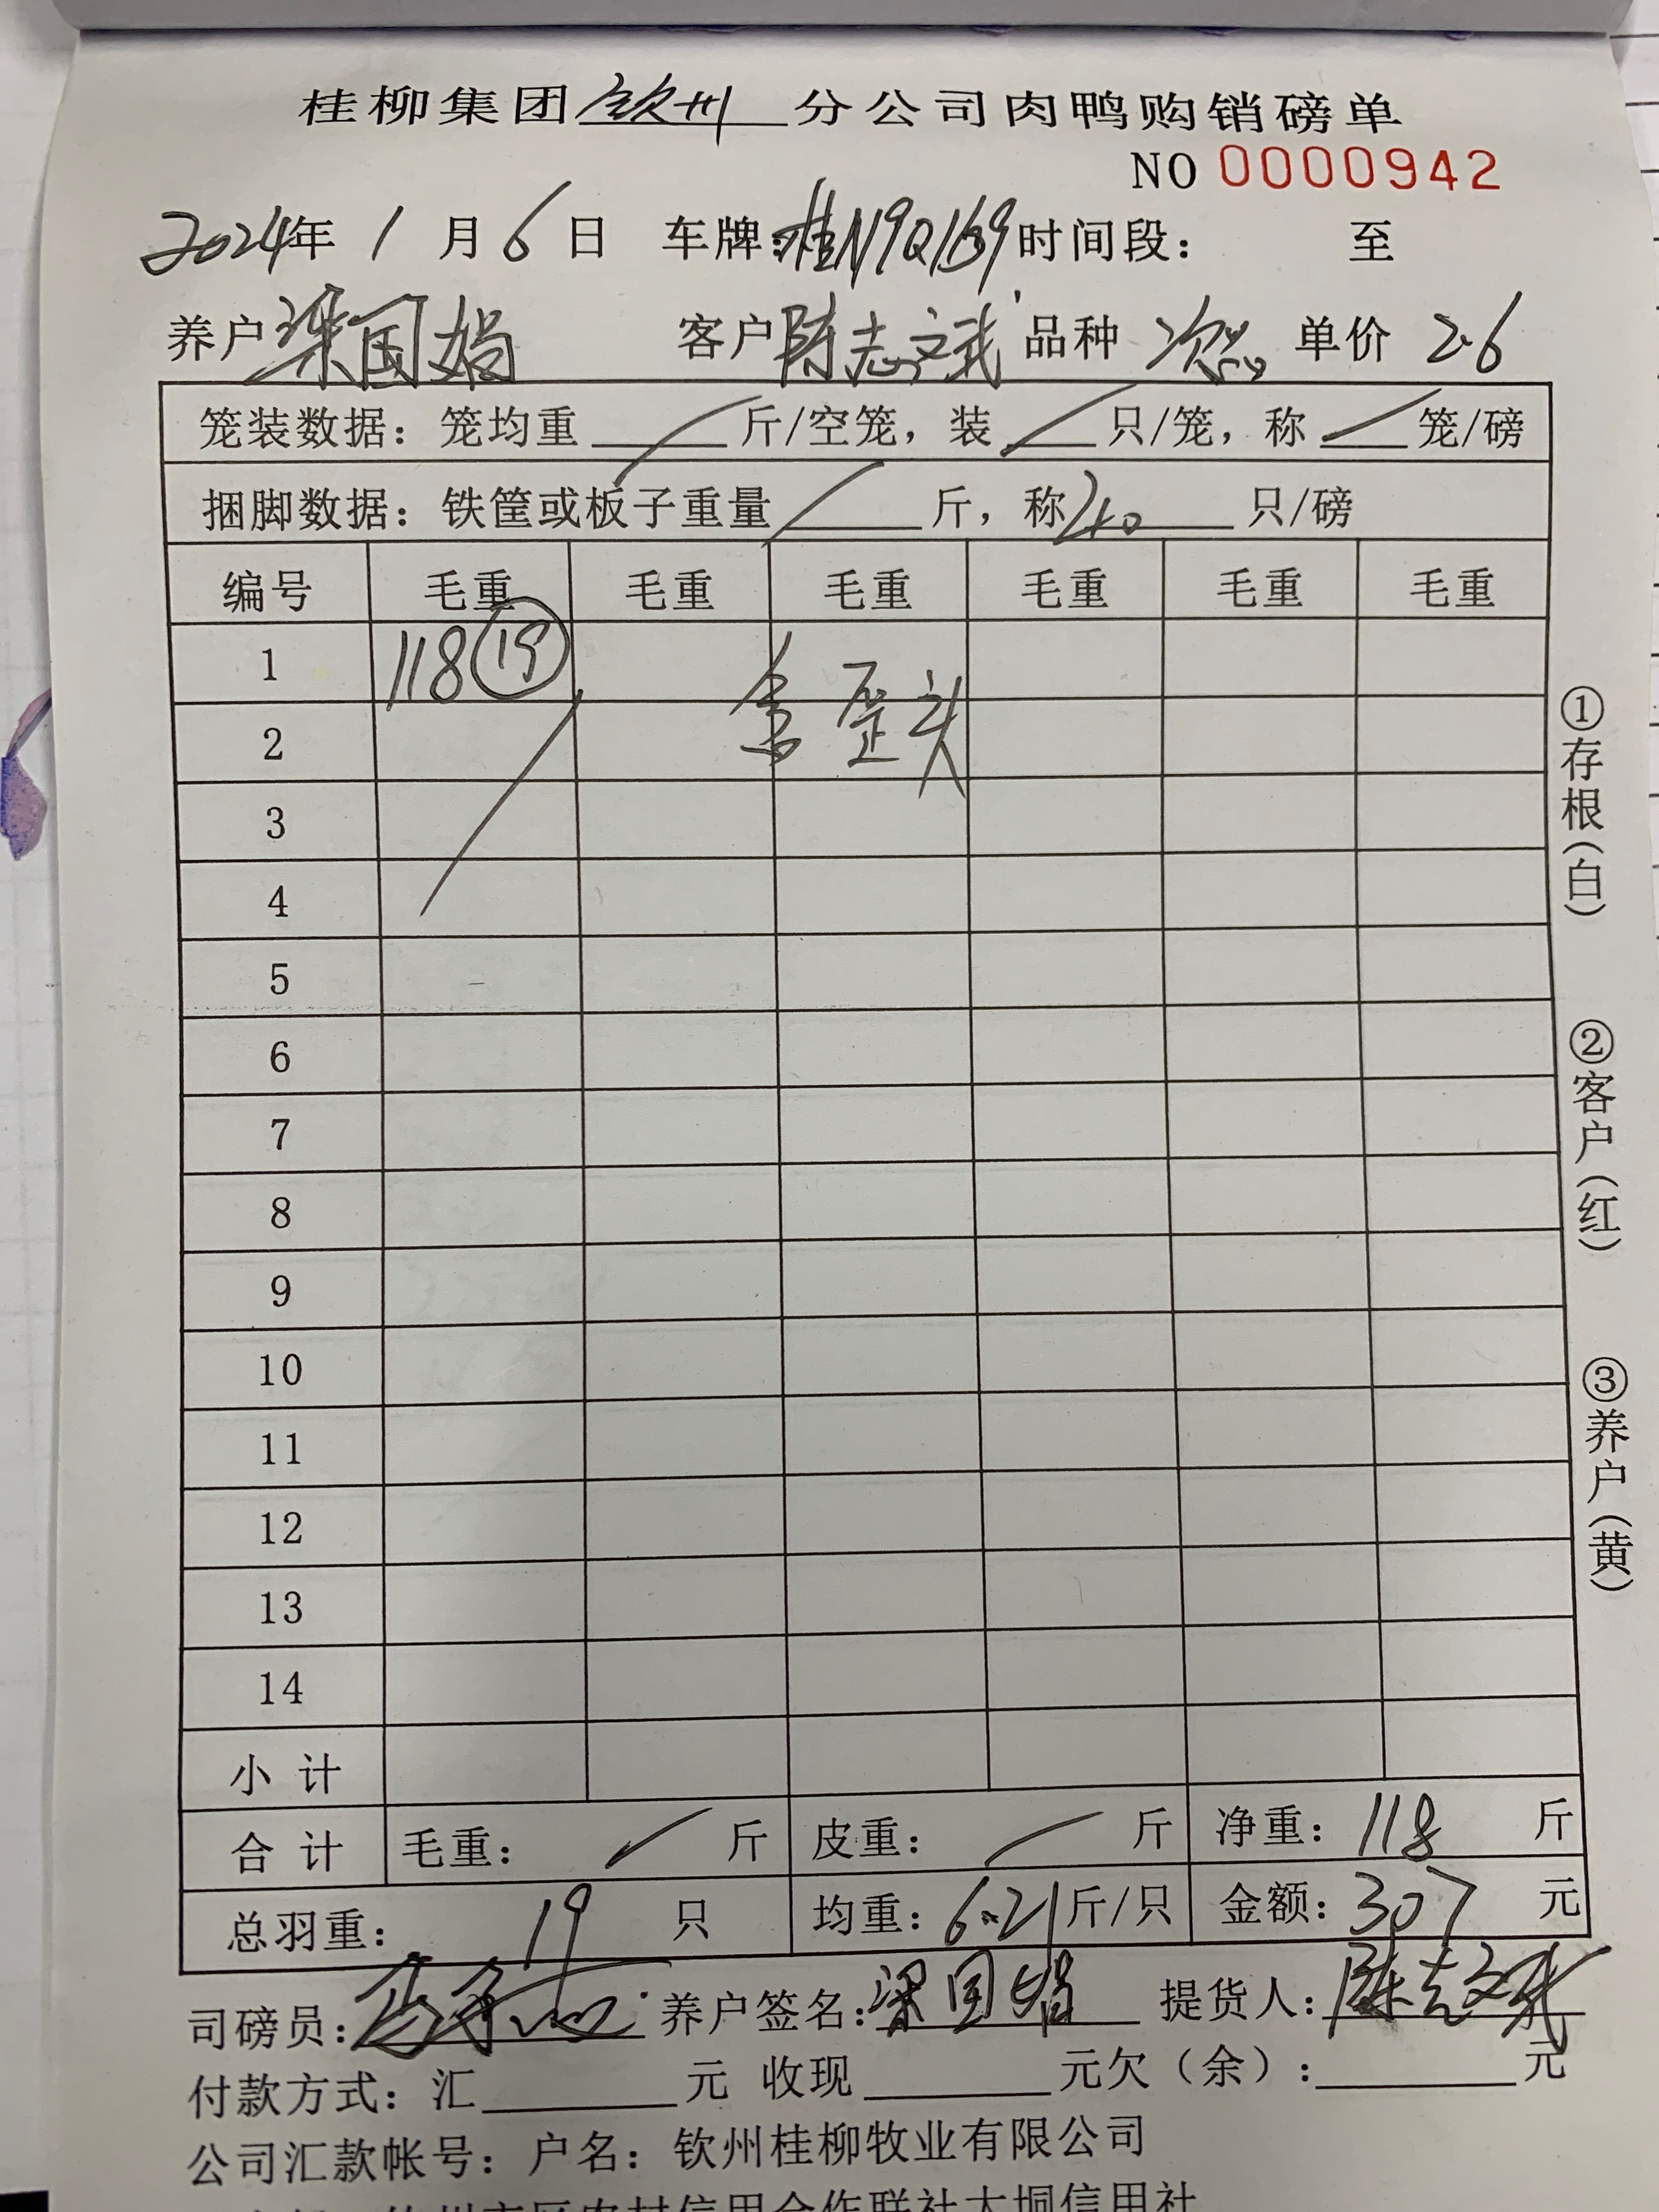 桂柳集团钦州分公司肉鸭购销磅单
NO 0000942
2024年 1 月 6 日 车牌:桂N9Q139 时间段: 至
养户 梁国娟 客户 陈志斌 品种 次 单价 2.6
笼装数据: 笼均重 斤/空笼, 装 只/笼, 称 笼/磅
捆脚数据: 铁筐或板子重量 斤, 称 20 只/磅
编号 毛重 毛重 毛重 毛重 毛重 毛重
1 118 19
含 歪头
2
3
4
5
6
7
8
9
10
11
12
13
14
小 计
合 计 毛重: 斤 皮重: 斤 净重: 118 斤
总羽重: 19 只 均重: 6.21 斤/只 金额: 307 元
司磅员: 养户签名: 梁国娟 提货人: 陈志斌
付款方式: 汇 元 收现 元欠（余）: 元
公司汇款帐号: 户名: 钦州桂柳牧业有限公司
①存根（白）
②客户（红）
③养户（黄）